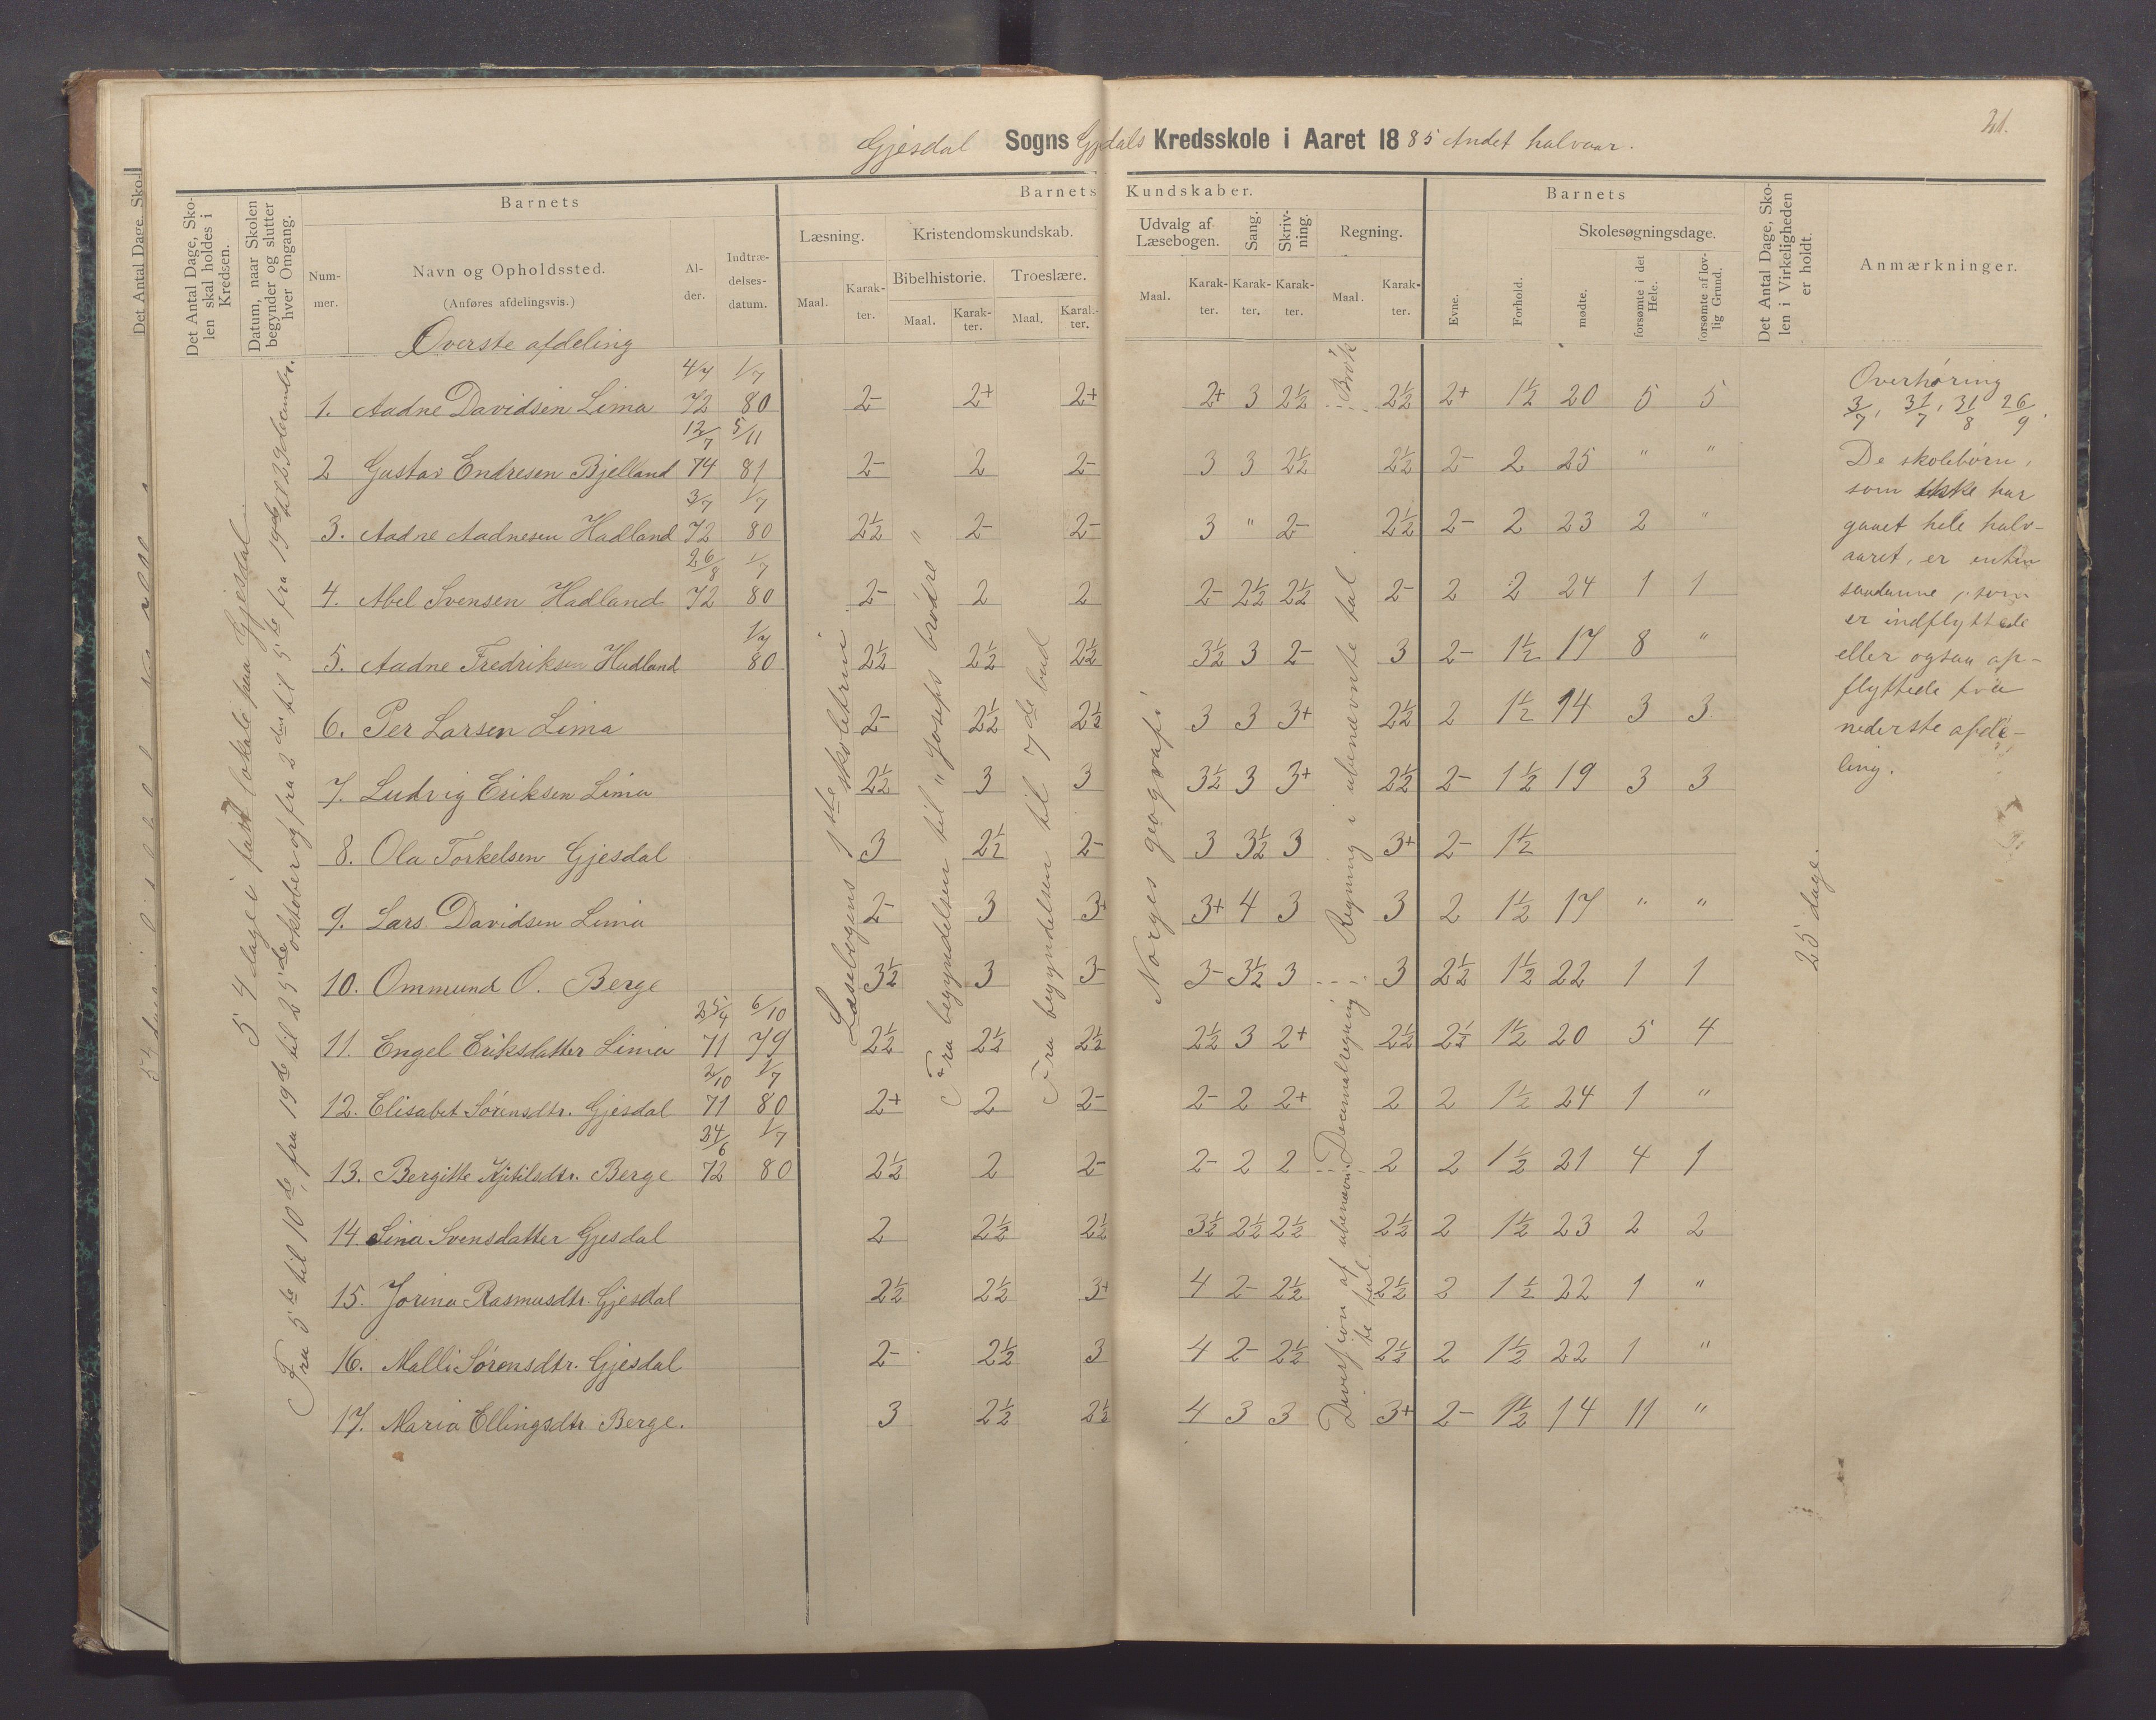 21.
Gjesdal Sogns Gjedals Kredsskole i Aaret 1885 Andet halvaar.
Det Antal Dage, Sko-
Det Antal Dage, Sko-
len skal holdes i
Kredsen.
Datum, naar Skolen
begynder og slutter
hver Omgang.
Barnets
Barnets Kundskaber.
Barnets
Det Antal Dage, Sko-
len i Virkeligheden
er holdt.
Num-
mer.
Navn og Opholdssted.
(Anføres afdelingsvis.)
Al-
der.
Indtræ-
delses-
datum.
Læsning.
Kristendomskundskab.
Udvalg af
Læsebogen.
Sang.
Skriv-
ning.
Regning.
Skolesøgningsdage.
Anmærkninger.
Maal.
Karak-
ter.
Bibelhistorie.
Troeslære.
Maal.
Karak-
ter.
Maal.
Karak-
ter.
Maal.
Karak-
ter.
Karak-
ter.
Karak-
ter.
Maal.
Karak-
ter.
Evne.
Forhold.
mødte.
forsømte i det
Hele.
forsømte af lov-
lig Grund.
Øverste afdeling
4/7 1/7
1. Aadne Davidsen Lima 72 80 2- 2+ 2+ 2+ 3 2½ 2½ 2+ 1½ 20 5 5
12/7 5/11
2 Gustav Endresen Bjelland 74 81 2- 2 2- 3 3 2½ 2½ 2- 2 25 " "
3/7 1/7
3. Aadne Aadnesen Hadland 72 80 2½ 2- 2- 3 " 2- 2½ 2- 2 23 2 "
26/8 1/7
4. Abel Svensen Hadland 72 80 2- 2 2 2- 2½ 2½ 2- 2 2 24 1 1
1/7
5. Aadne Fredriksen Hadland 80 2½ 2½ 2½ 3½ 3 2- 3 2- 1½ 17 8 "
6. Per Larsen Lima 2- 2½ 2½ 3 3 3+ 2½ 2 1½ 14 3 3
7. Ludvig Eriksen Lima 2½ 3 3 3½ 3 3+ 2½ 2- 1½ 19 3 3
8. Ola Torkelsen Gjesdal 3 2½ 2- 3 3½ 3 3+ 2- 1½
9. Lars Davidsen Lima 2- 3 3+ 3+ 4 3 3 2 1½ 17 " "
10. Ommund O. Berge 3½ 3 3- 3- 3½ 3 3 2½ 1½ 22 1 1
25/4 6/10
11. Engel Eriksdatter Lima 71 79 2½ 2½ 2½ 2½ 3 2+ 2½ 2½ 1½ 20 5 4
2/10 1/7
12. Elisabet Sørensdtr. Gjesdal 71 80 2+ 2 2- 2- 2 2+ 2 2 1½ 24 1 "
24/6 1/7
13. Bergitte Kjitilsdtr. Berge 72 80 2½ 2 2- 2- 2 2 2 2 1½ 21 4 1
14 Sina Svensdatter Gjesdal 2 2½ 2½ 3½ 2½ 2½ 2½ 2 1½ 23 2 2
15. Jorina Rasmusdtr. Gjesdal 2½ 2½ 3+ 4 2- 2½ 2½ 2 1½ 22 1 "
16. Malli Sørensdtr. Gjesdal 2- 2½ 3 4 2- 2½ 2½ 2 1½ 22 1 "
17. Maria Ellingsdtr. Berge. 3 2½ 2½ 4 3 3 3+ 2- 1½ 14 11 "
54 dage i fast lokale paa Gjesdal.
Fra 5te til 10de, fra 19de til 25de oktober og fra 2den til 5te fra 19de til 29de december.
Læsebogens 1ste skoletrin
Fra begyndelsen til "Josefs brødre"
Fra begyndelsen til 7de bud
Norges geografi
Brøk
Regning i ubenævnte tal.
Decimalregning
Division af ubenævn-
te tal.
25 dage.
Overhøring
3/7, 31/7, 31/8 26/9.
De skolebørn,
som ikke har
gaaet hele halv-
aaret, er enten
saadanne, som
er indflyttede
eller ogsaa op-
flyttede fra
nederste afde-
ling.